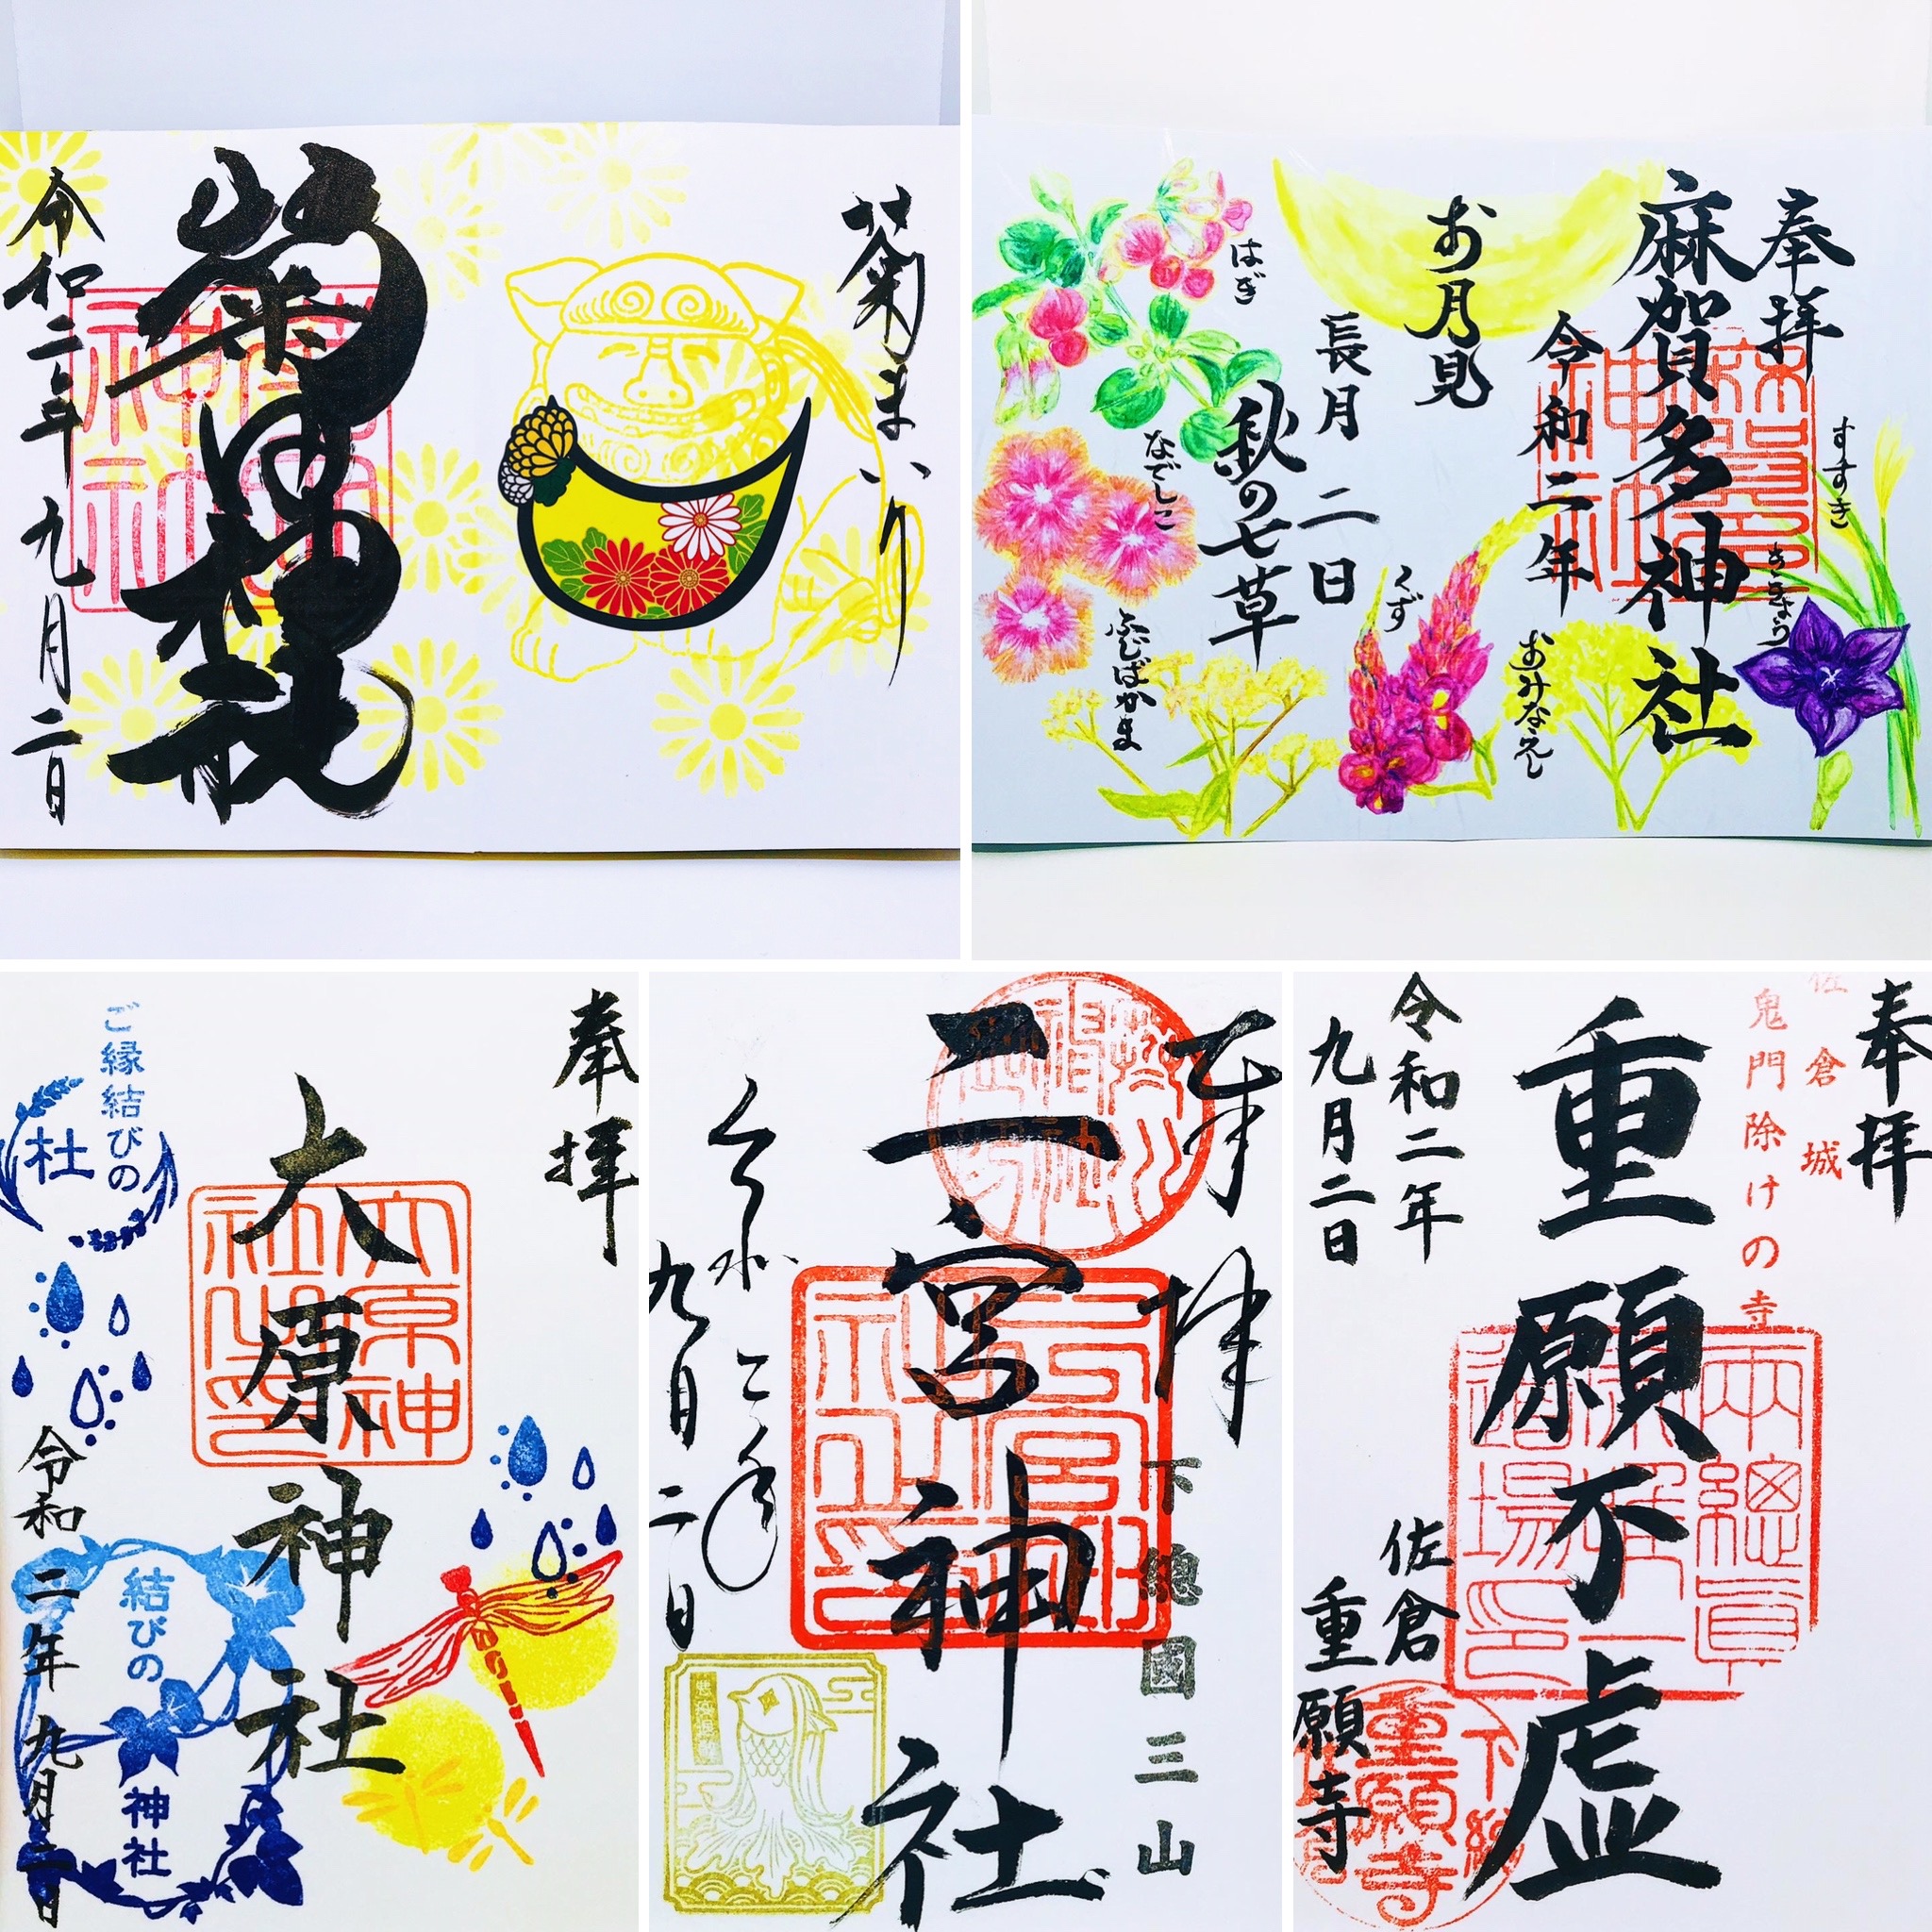 菊まいり
菊田神社
令和二年九月二日
奉拝
麻賀多神社
令和二年
お月見
長月二日
秋の七草
すすき
ききょう
おみなえし
くず
はぎ
なでしこ
ふじばかま
奉拝
大原神社
大原神社之印
令和二年九月二日
ご縁結びの
杜
結びの
神社
奉拝
下總國三山
二宮神社
令和二年
九月二日
奉拝
佐倉城
鬼門除けの寺
重願不虚
令和二年
九月二日
佐倉
重願寺
重願寺